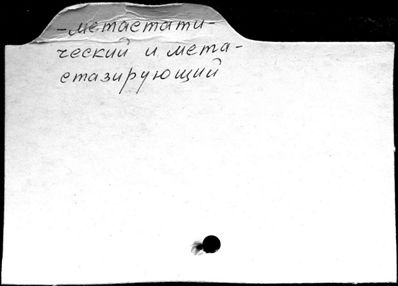 -метастати-
ческий и мета-
стазирующий